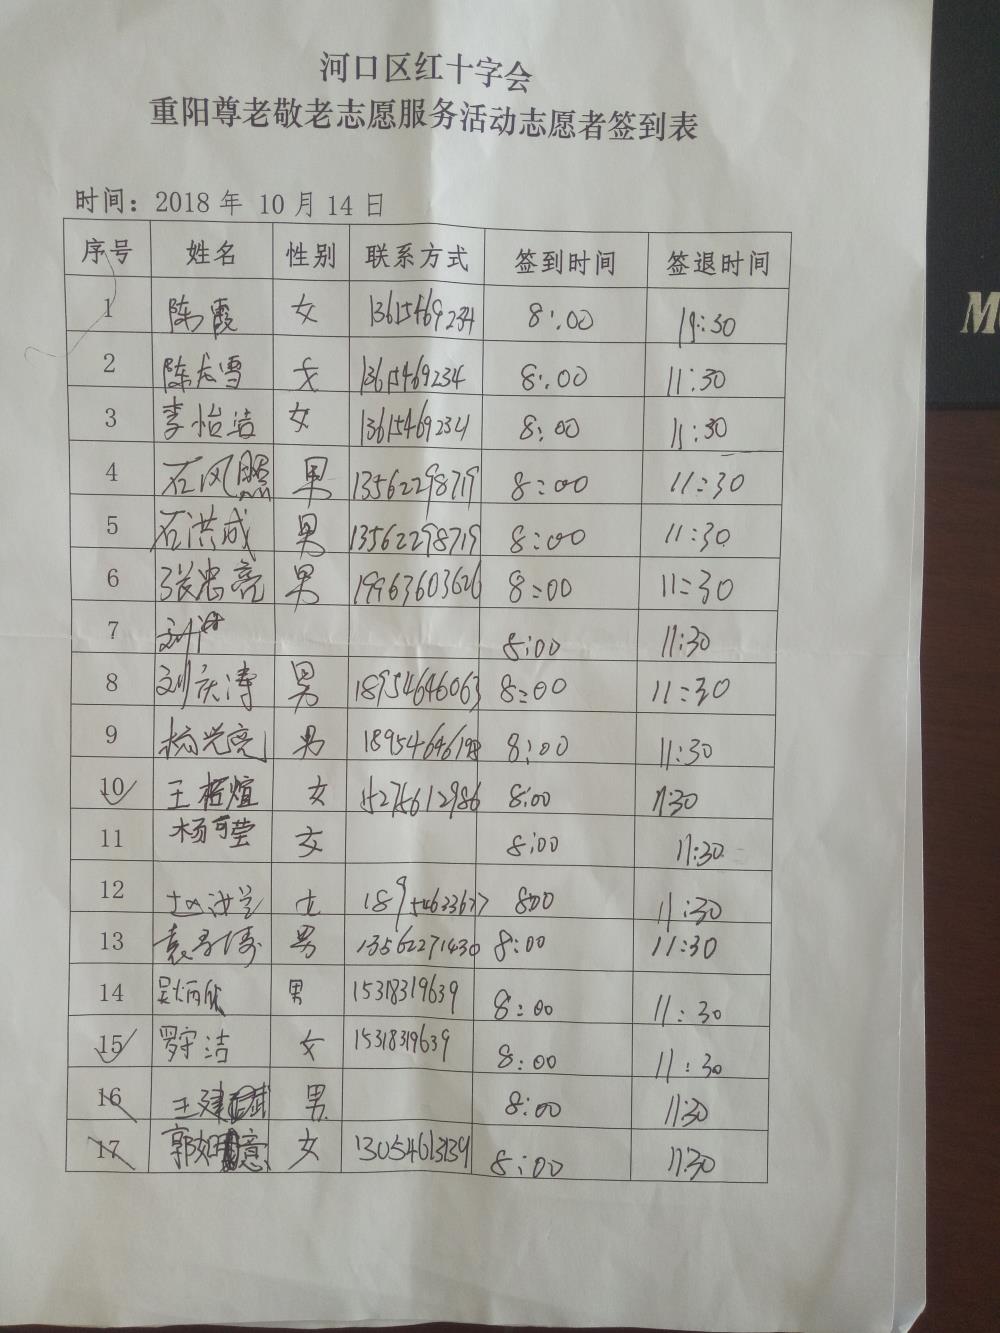 河口区红十字会
重阳尊老敬老志愿服务活动志愿者签到表
时间：2018 年 10 月 14 日
序号 姓名 性别 联系方式 签到时间 签退时间
1 陈霞 女 13615469234 8:00 11:30
2 陈龙雪 女 13615469234 8:00 11:30
3 李怡洁 女 13615469234 8:00 11:30
4 石风鹏 男 13562298719 8:00 11:30
5 石洪成 男 13562298719 8:00 11:30
6 张忠亮 男 19963603626 8:00 11:30
7 刘 8:00 11:30
8 刘庆涛 男 18954646063 8:00 11:30
9 杨光亮 男 8:00 11:30
10 王 煊 女 15275612986 8:00 11:30
11 杨可莹 女 8:00 11:30
12 赵洪兰 女 18954623677 8:00 11:30
13 袁 涛 男 13562271430 8:00 11:30
14 吴炳欣 男 15318319639 8:00 11:30
15 罗守洁 女 15318319639 8:00 11:30
16 王建斌 男 8:00 11:30
17 郭如意 女 13054613139 8:00 11:30